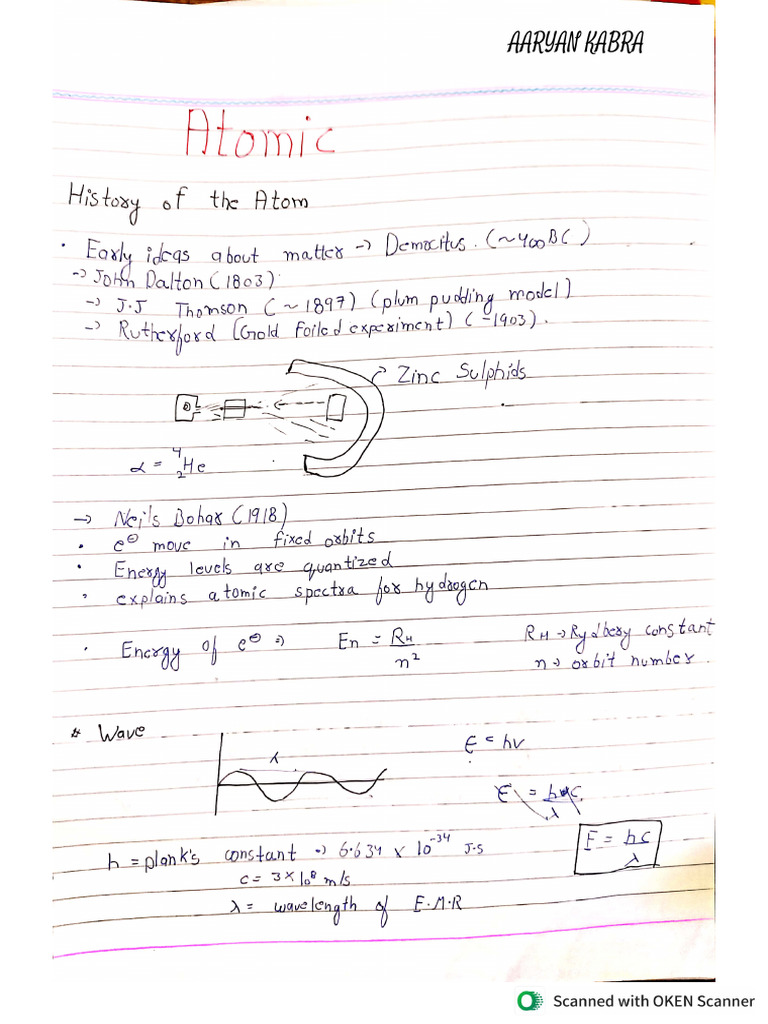 AARYAN KABRA
Atomic
History of the Atom
• Early ideas about matter → Democitus. (~400BC)
→ John Dalton (1803)
→ J.J Thomson (~1897) (plum pudding model)
→ Rutherford (Gold Foiled experiment) (~1903).
Zinc Sulphids
α = ⁴₂He
→ Neils Bohar (1918)
• e⊖ move in fixed orbits
• Energy levels are quantized
• explains atomic spectra for hydrogen
• Energy of e⊖ ⇒ En = RH/n² RH → Rydbery constant
n → orbit number.
# Wave
λ
E = hν
E = hc/λ
E = hc/λ
h = plank's constant ⇒ 6.634 × 10⁻³⁴ J.s
c = 3 × 10⁸ m/s
λ = wavelength of E.M.R
Scanned with OKEN Scanner